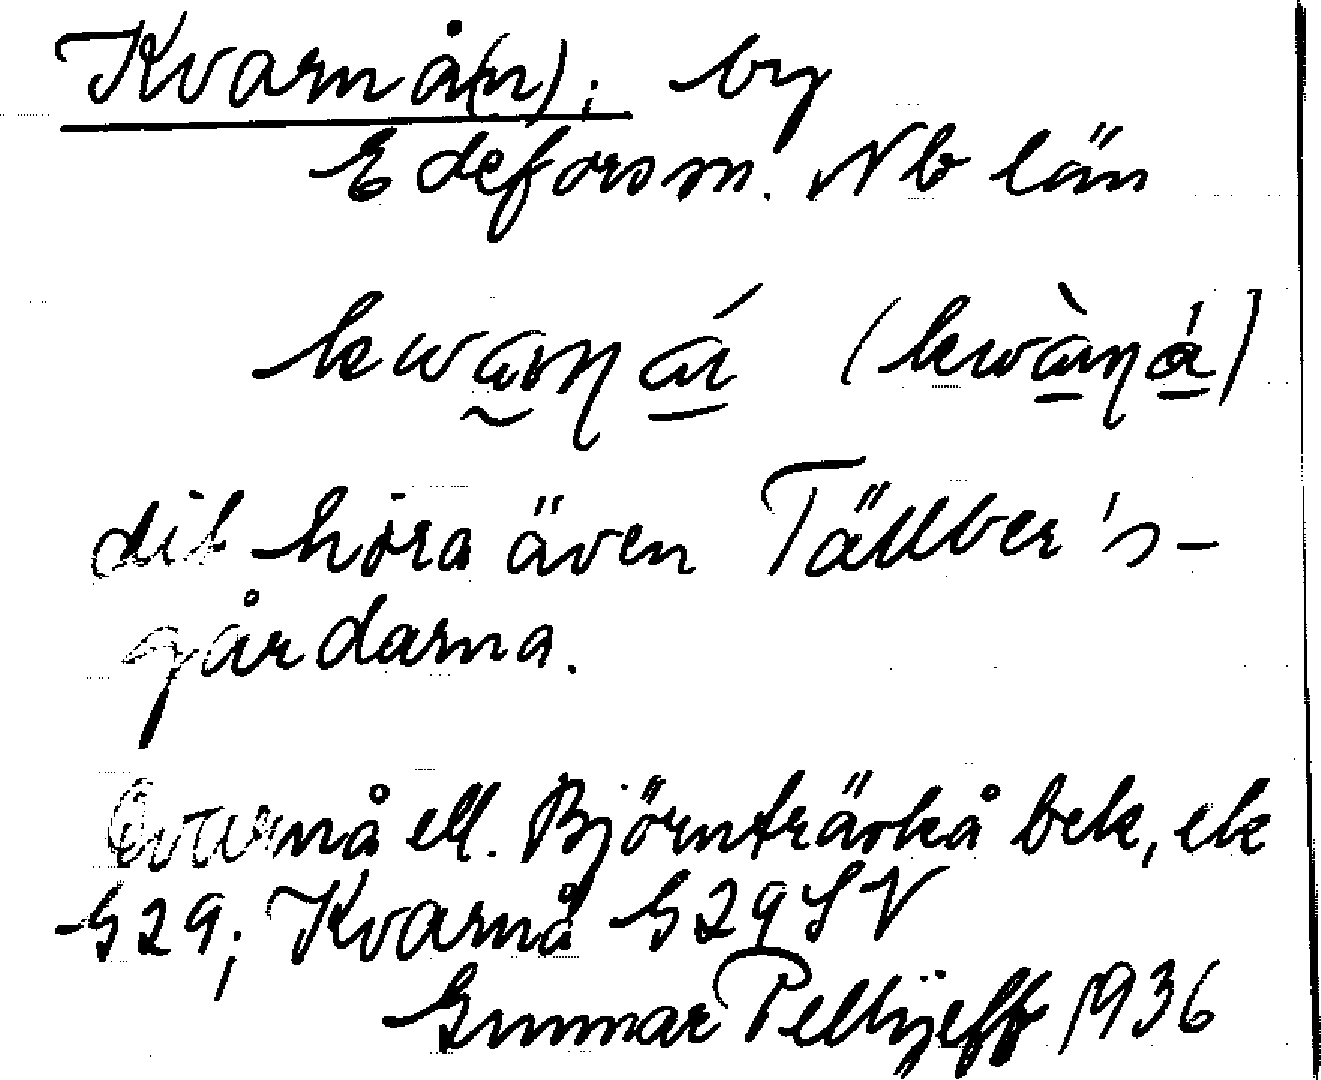 Kvarnå(n); by
Edefors sn. Nb län
kwarŋå (kwàrŋá)
dit höra även Tällber's-
gårdarna.
Qvarnå ell. Björnträskå bek, ek
G29; Kvarnå G29SV
Gunnar Pellijeff 1936